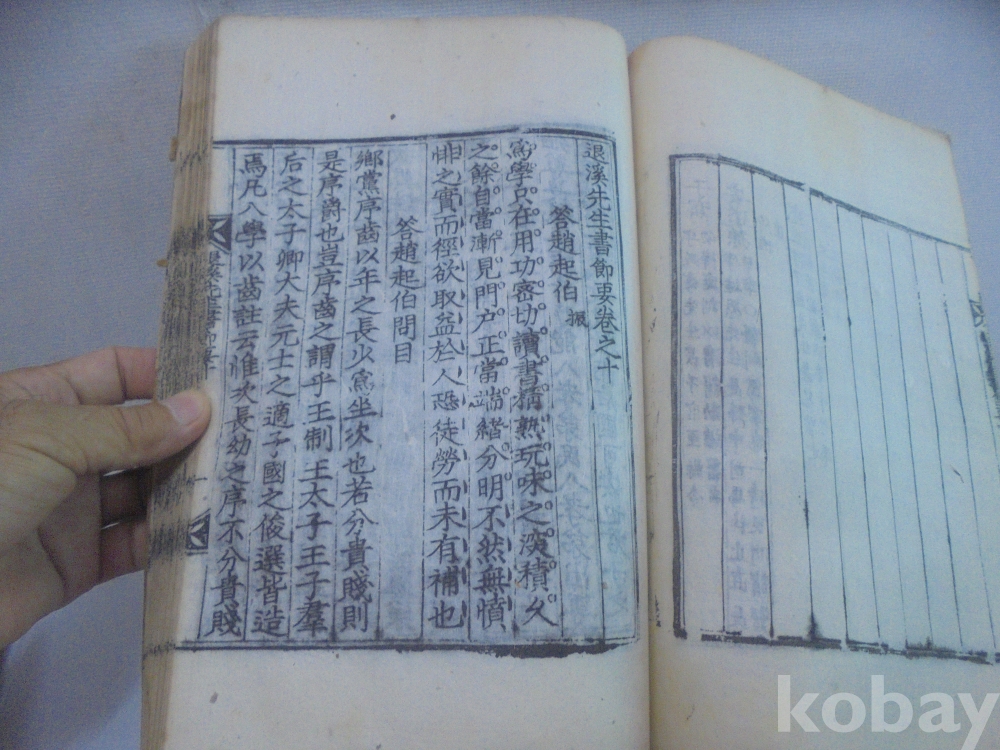 退溪先生書節要卷之十
答趙起伯 振
爲學只在用功密切讀書精熟玩味之深積久
之餘自當漸見門户正當端緒分明不然無憤
悱之實而徑欲取益於人恐徒勞而未有補也
答趙起伯問目
鄉黨序齒以年之長少爲坐次也若分貴賤則
是序爵也豈序齒之謂乎王制王太子王子羣
后之太子卿大夫元士之適子國之俊選皆造
焉凡入學以齒註云惟次長幼之序不分貴賤
kobay